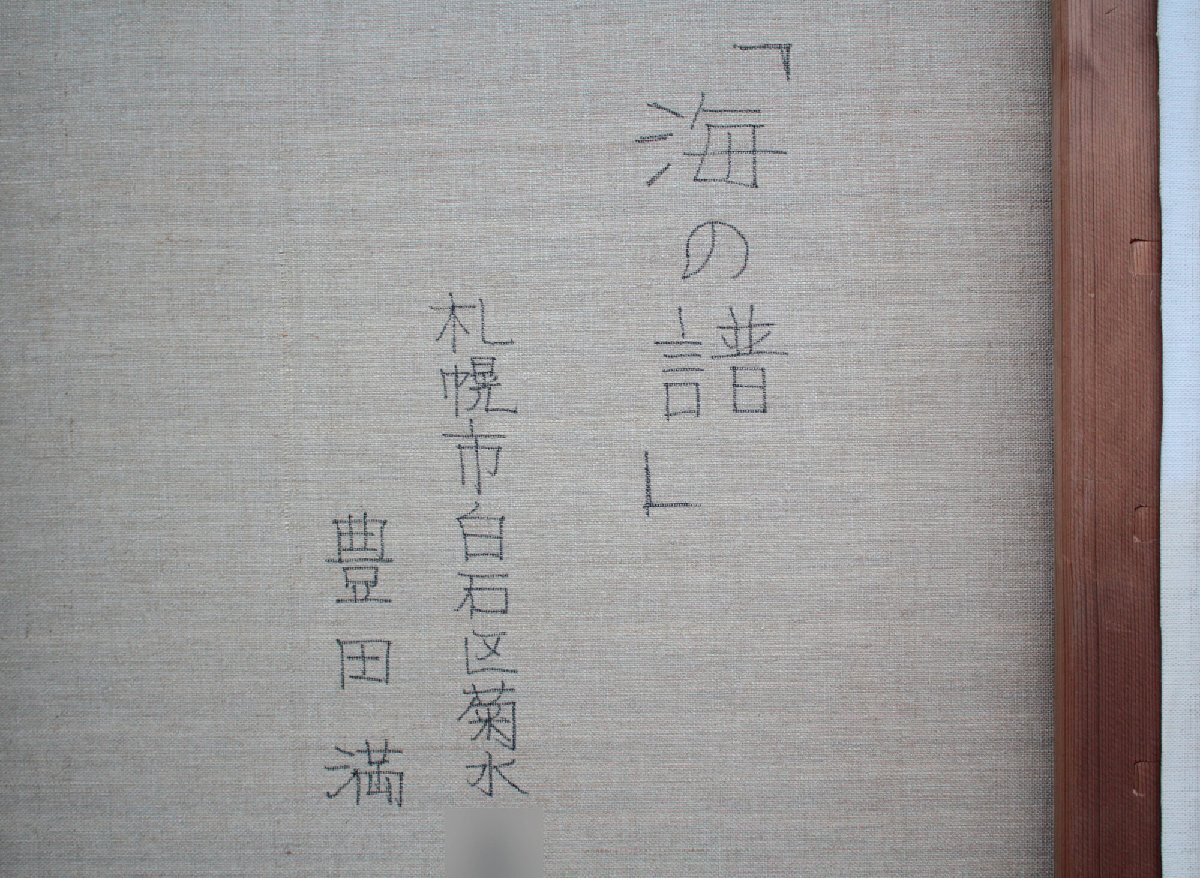 「海の譜」
札幌市白石区菊水
豊田満